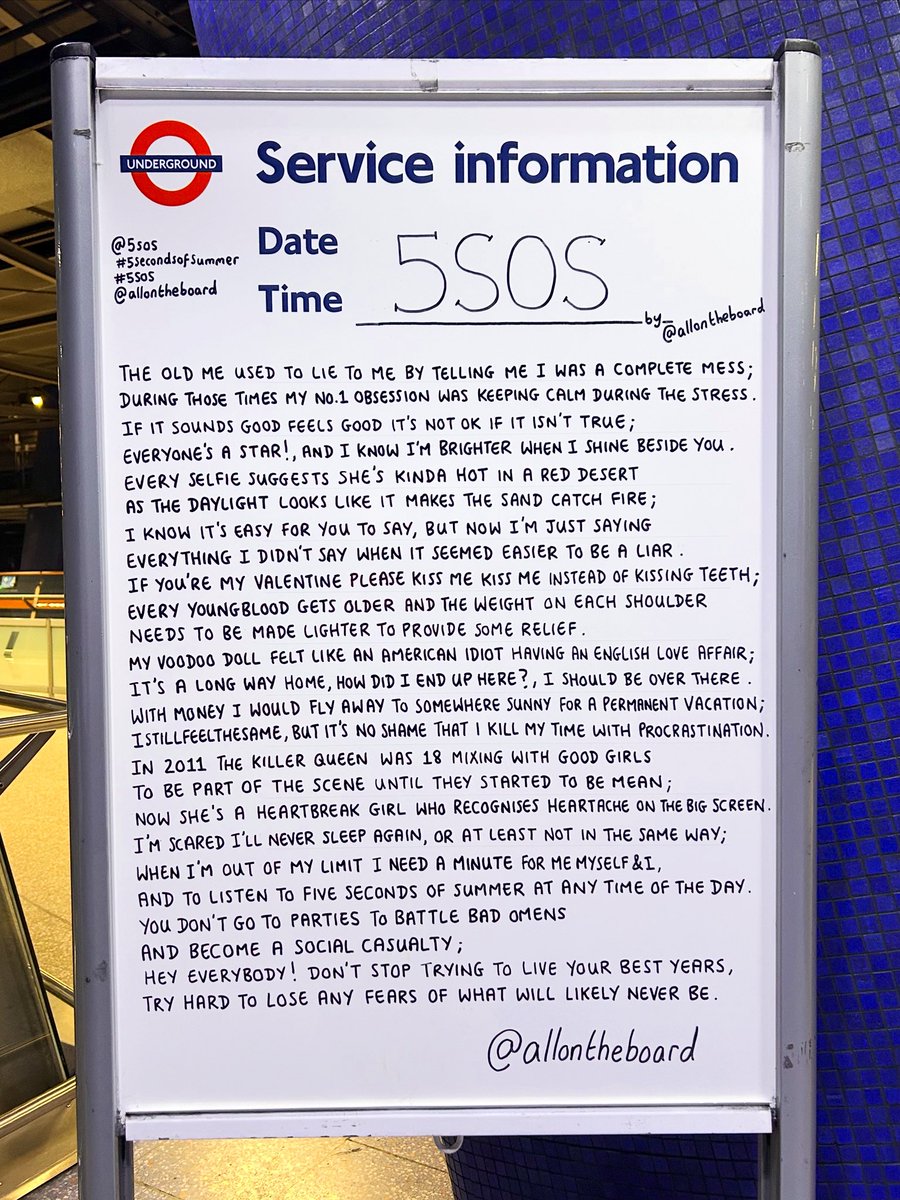 UNDERGROUND
Service information
@5sos
#5secondsofsummer
#5SOS
@allontheboard
Date
Time
5SOS
by_
@allontheboard
THE OLD ME USED TO LIE TO ME BY TELLING ME I WAS A COMPLETE MESS;
DURING THOSE TIMES MY NO.1 OBSESSION WAS KEEPING CALM DURING THE STRESS.
IF IT SOUNDS GOOD FEELS GOOD IT'S NOT OK IF IT ISN'T TRUE;
EVERYONE'S A STAR!, AND I KNOW I'M BRIGHTER WHEN I SHINE BESIDE YOU.
EVERY SELFIE SUGGESTS SHE'S KINDA HOT IN A RED DESERT
AS THE DAYLIGHT LOOKS LIKE IT MAKES THE SAND CATCH FIRE;
I KNOW IT'S EASY FOR YOU TO SAY, BUT NOW I'M JUST SAYING
EVERYTHING I DIDN'T SAY WHEN IT SEEMED EASIER TO BE A LIAR.
IF YOU'RE MY VALENTINE PLEASE KISS ME KISS ME INSTEAD OF KISSING TEETH;
EVERY YOUNGBLOOD GETS OLDER AND THE WEIGHT ON EACH SHOULDER
NEEDS TO BE MADE LIGHTER TO PROVIDE SOME RELIEF.
MY VOODOO DOLL FELT LIKE AN AMERICAN IDIOT HAVING AN ENGLISH LOVE AFFAIR;
IT'S A LONG WAY HOME, HOW DID I END UP HERE?, I SHOULD BE OVER THERE.
WITH MONEY I WOULD FLY AWAY TO SOMEWHERE SUNNY FOR A PERMANENT VACATION;
ISTILLFEELTHESAME, BUT IT'S NO SHAME THAT I KILL MY TIME WITH PROCRASTINATION.
IN 2011 THE KILLER QUEEN WAS 18 MIXING WITH GOOD GIRLS
TO BE PART OF THE SCENE UNTIL THEY STARTED TO BE MEAN;
NOW SHE'S A HEARTBREAK GIRL WHO RECOGNISES HEARTACHE ON THE BIG SCREEN.
I'M SCARED I'LL NEVER SLEEP AGAIN, OR AT LEAST NOT IN THE SAME WAY;
WHEN I'M OUT OF MY LIMIT I NEED A MINUTE FOR ME MYSELF & I,
AND TO LISTEN TO FIVE SECONDS OF SUMMER AT ANY TIME OF THE DAY.
YOU DON'T GO TO PARTIES TO BATTLE BAD OMENS
AND BECOME A SOCIAL CASUALTY;
HEY EVERYBODY! DON'T STOP TRYING TO LIVE YOUR BEST YEARS,
TRY HARD TO LOSE ANY FEARS OF WHAT WILL LIKELY NEVER BE.
@allontheboard